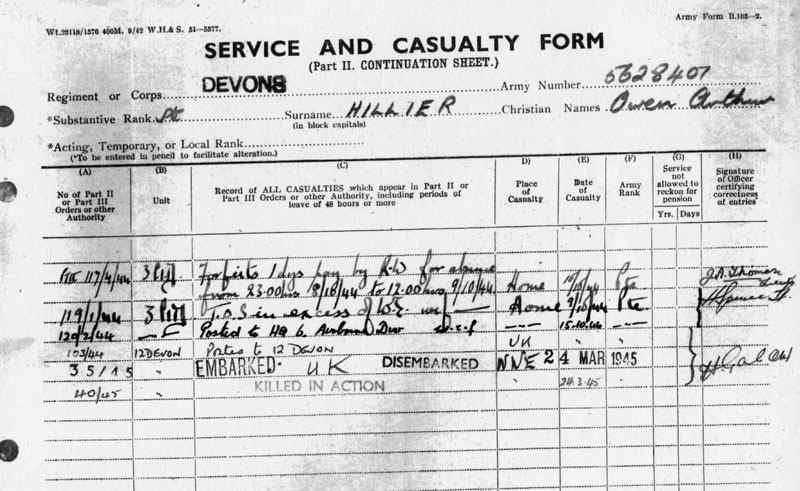 Wt.22118/1570 400M. 9/42 W.H.& S. 51—5377.
Army Form B.103—2.
SERVICE AND CASUALTY FORM
(Part II. CONTINUATION SHEET.)
Regiment or Corps DEVONS Army Number 5628407
*Substantive Rank Pt Surname HILLIER Christian Names Owen Arthur
(in block capitals)
*Acting, Temporary, or Local Rank
(*To be entered in pencil to facilitate alteration.)
(A) (B) (C) (D) (E) (F) (G) (H)
No of Part II or Part III Orders or other Authority
Unit
Record of ALL CASUALTIES which appear in Part II or Part III Orders or other Authority, including periods of leave of 48 hours or more
Place of Casualty
Date of Casualty
Army Rank
Service not allowed to reckon for pension
Yrs. Days
Signature of Officer certifying correctness of entries
117/4/44 Forfeits 1 dys pay by R.W for absence
from 23.00hrs 8/10/44 to 12.00hrs 9/10/44 Home Pte J.A. Thomas Lieut
119/1/44 T.O.S in excess of W.E. Home 9/10/44 Pte
120/2/44 Posted to HQ 6 Airborne Div 15.10.44
103/44 12DEVON Posted to 12 DEVON UK
35/45 " EMBARKED. UK DISEMBARKED NWE 24 MAR 1945
40/45 " KILLED IN ACTION " 24.3.45 "